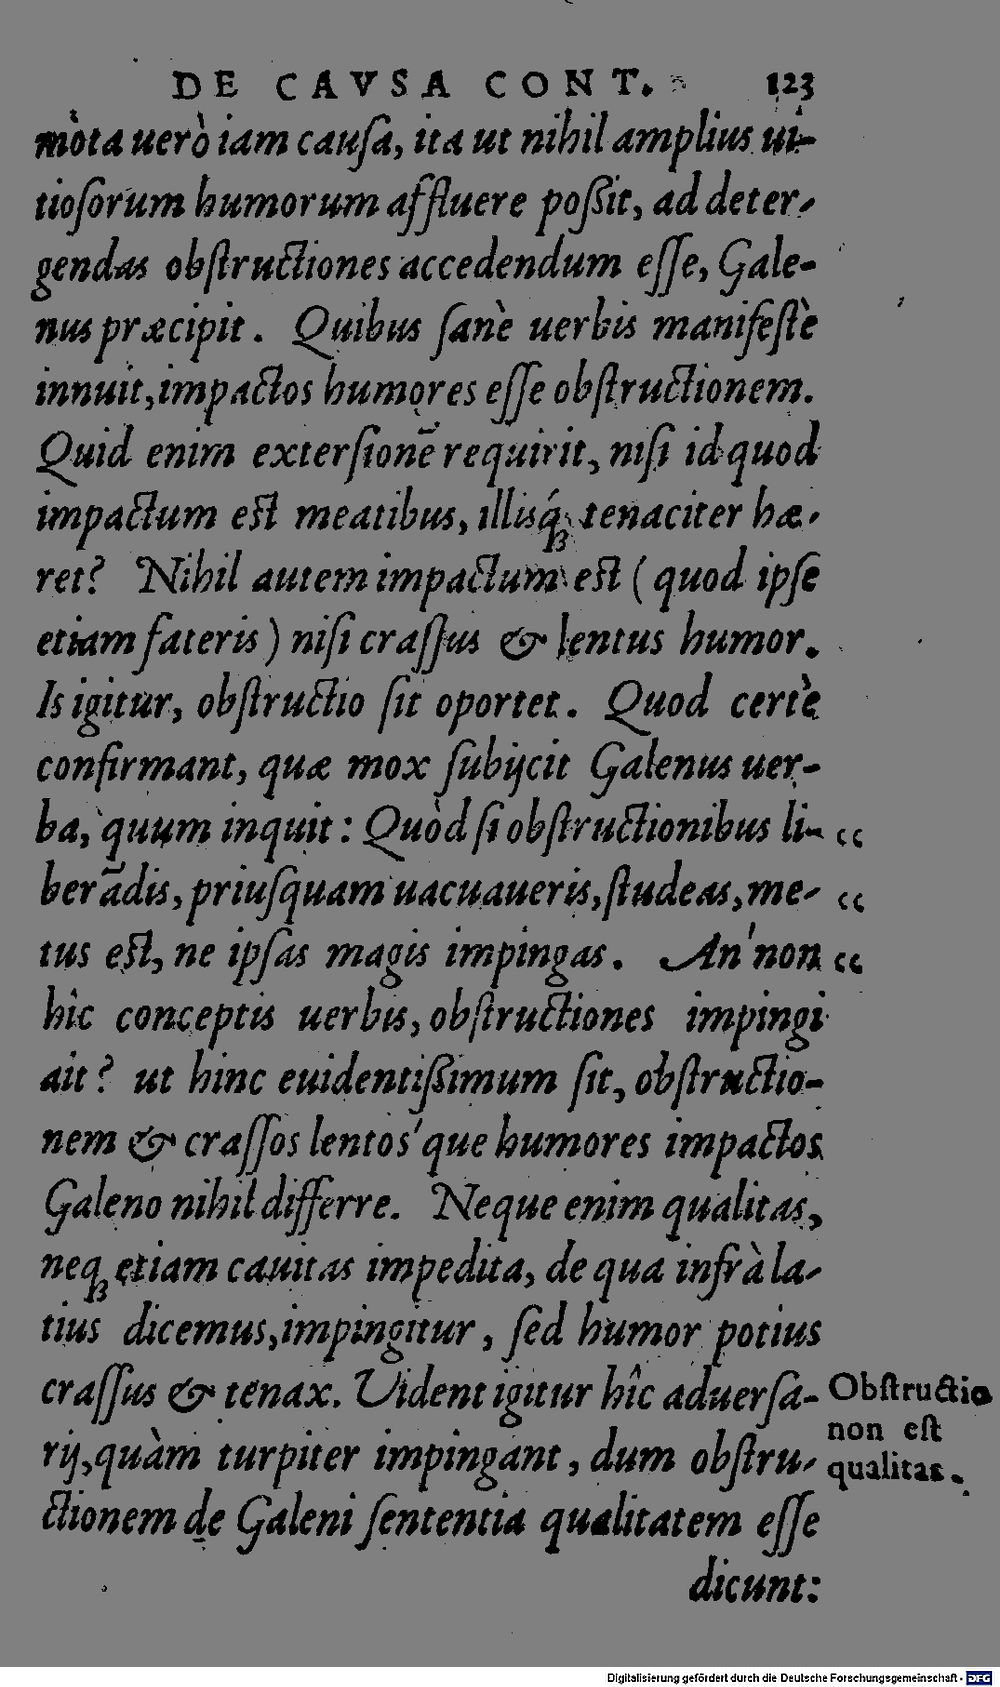 DE CAVSA CONT. 123
mòta uerò iam causa, ita ut nihil amplius ui-
tiosorum humorum affluere poßit, ad deter-
gendas obstructiones accedendum esse, Gale-
nus præcipit. Quibus sanè uerbis manifestè
innuit, impactos humores esse obstructionem.
Quid enim extersionē requirit, nisi id quod
impactum est meatibus, illisq́ꝫ tenaciter hæ-
ret? Nihil autem impactum est (quod ipse
etiam fateris) nisi crassus & lentus humor.
Is igitur, obstructio sit oportet. Quod certè
confirmant, quæ mox subijcit Galenus uer-
ba, quum inquit: Quòd si obstructionibus li- “
berādis, priusquam uacuaueris, studeas, me- “
tus est, ne ipsas magis impingas. An' non “
hîc conceptis uerbis, obstructiones impingi
ait? ut hinc euidentißimum sit, obstructio-
nem & crassos lentos'que humores impactos
Galeno nihil differre. Neque enim qualitas,
neqꝫ etiam cauitas impedita, de qua infrà la-
tius dicemus, impingitur, sed humor potius
crassus & tenax. Uident igitur hîc aduersa-
rij, quàm turpiter impingant, dum obstru-
ctionem de Galeni sententia qualitatem esse
dicunt:
Obstructio
non est
qualitas.
Digitalisierung gefördert durch die Deutsche Forschungsgemeinschaft - DFG